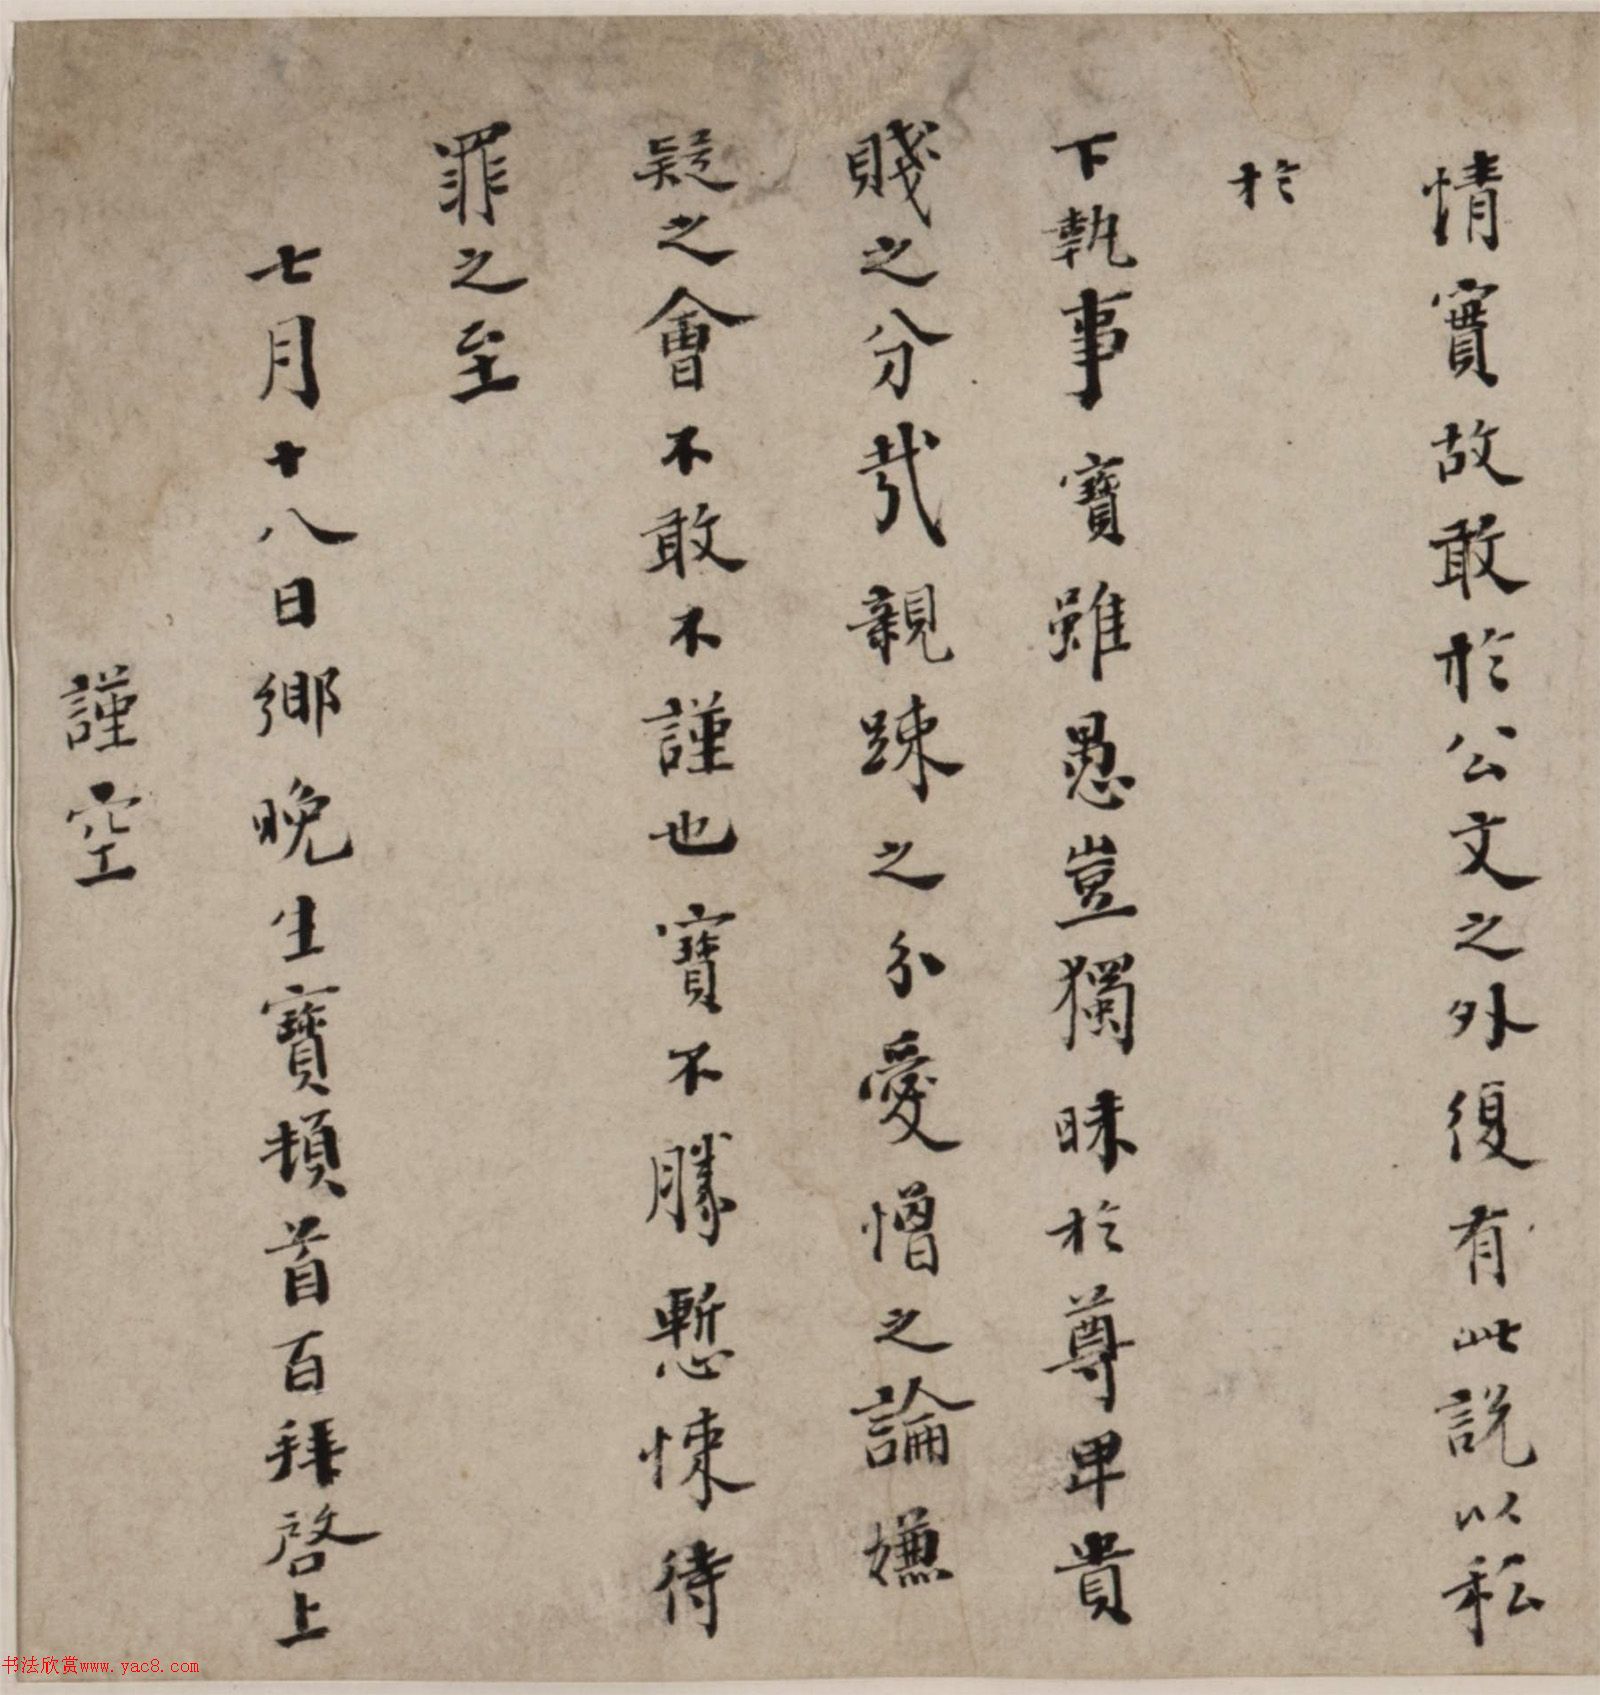 情實故敢於公文之外復有此説以私
於
下執事寶雖愚豈獨昧於尊卑貴
賤之分哉親踈之分愛憎之論嫌
疑之會不敢不謹也寶不勝慙悚待
罪之至
七月十八日鄉晚生寶頓首百拜啓上
謹空
书法欣赏www.yac8.com